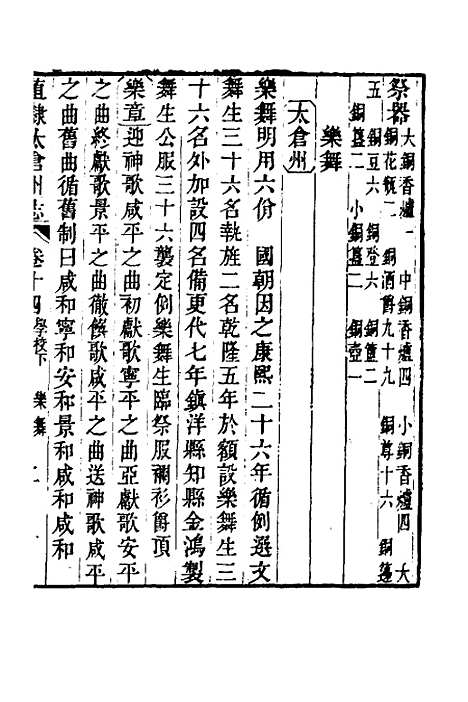 祭器大銅香爐一　中銅香爐四　小銅香爐四　大
銅花甁二　銅酒爵九十九　銅尊十六　銅籩
五　銅豆六　銅登六　銅簠二
銅簋二　小銅簋二　銅壺一
樂舞
太倉州
樂舞明用六佾　國朝因之康熙二十六年循例選文
舞生三十六名執旌二名乾隆五年於額設樂舞生三
十六名外加設四名備更代七年鎮洋縣知縣金鴻製
舞生公服三十六襲定例樂舞生臨祭服襴衫爵頂
樂章迎神歌咸平之曲初獻歌寧平之曲亞獻歌安平
之曲終獻歌景平之曲徹饌歌咸平之曲送神歌咸平
之曲舊曲循舊制曰咸和寧和安和景和咸和咸和
直隸太倉州志　卷十四學校下　樂舞　二